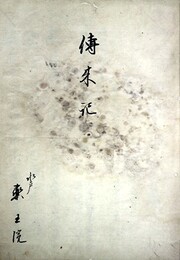 傳来記
水戸
東王院